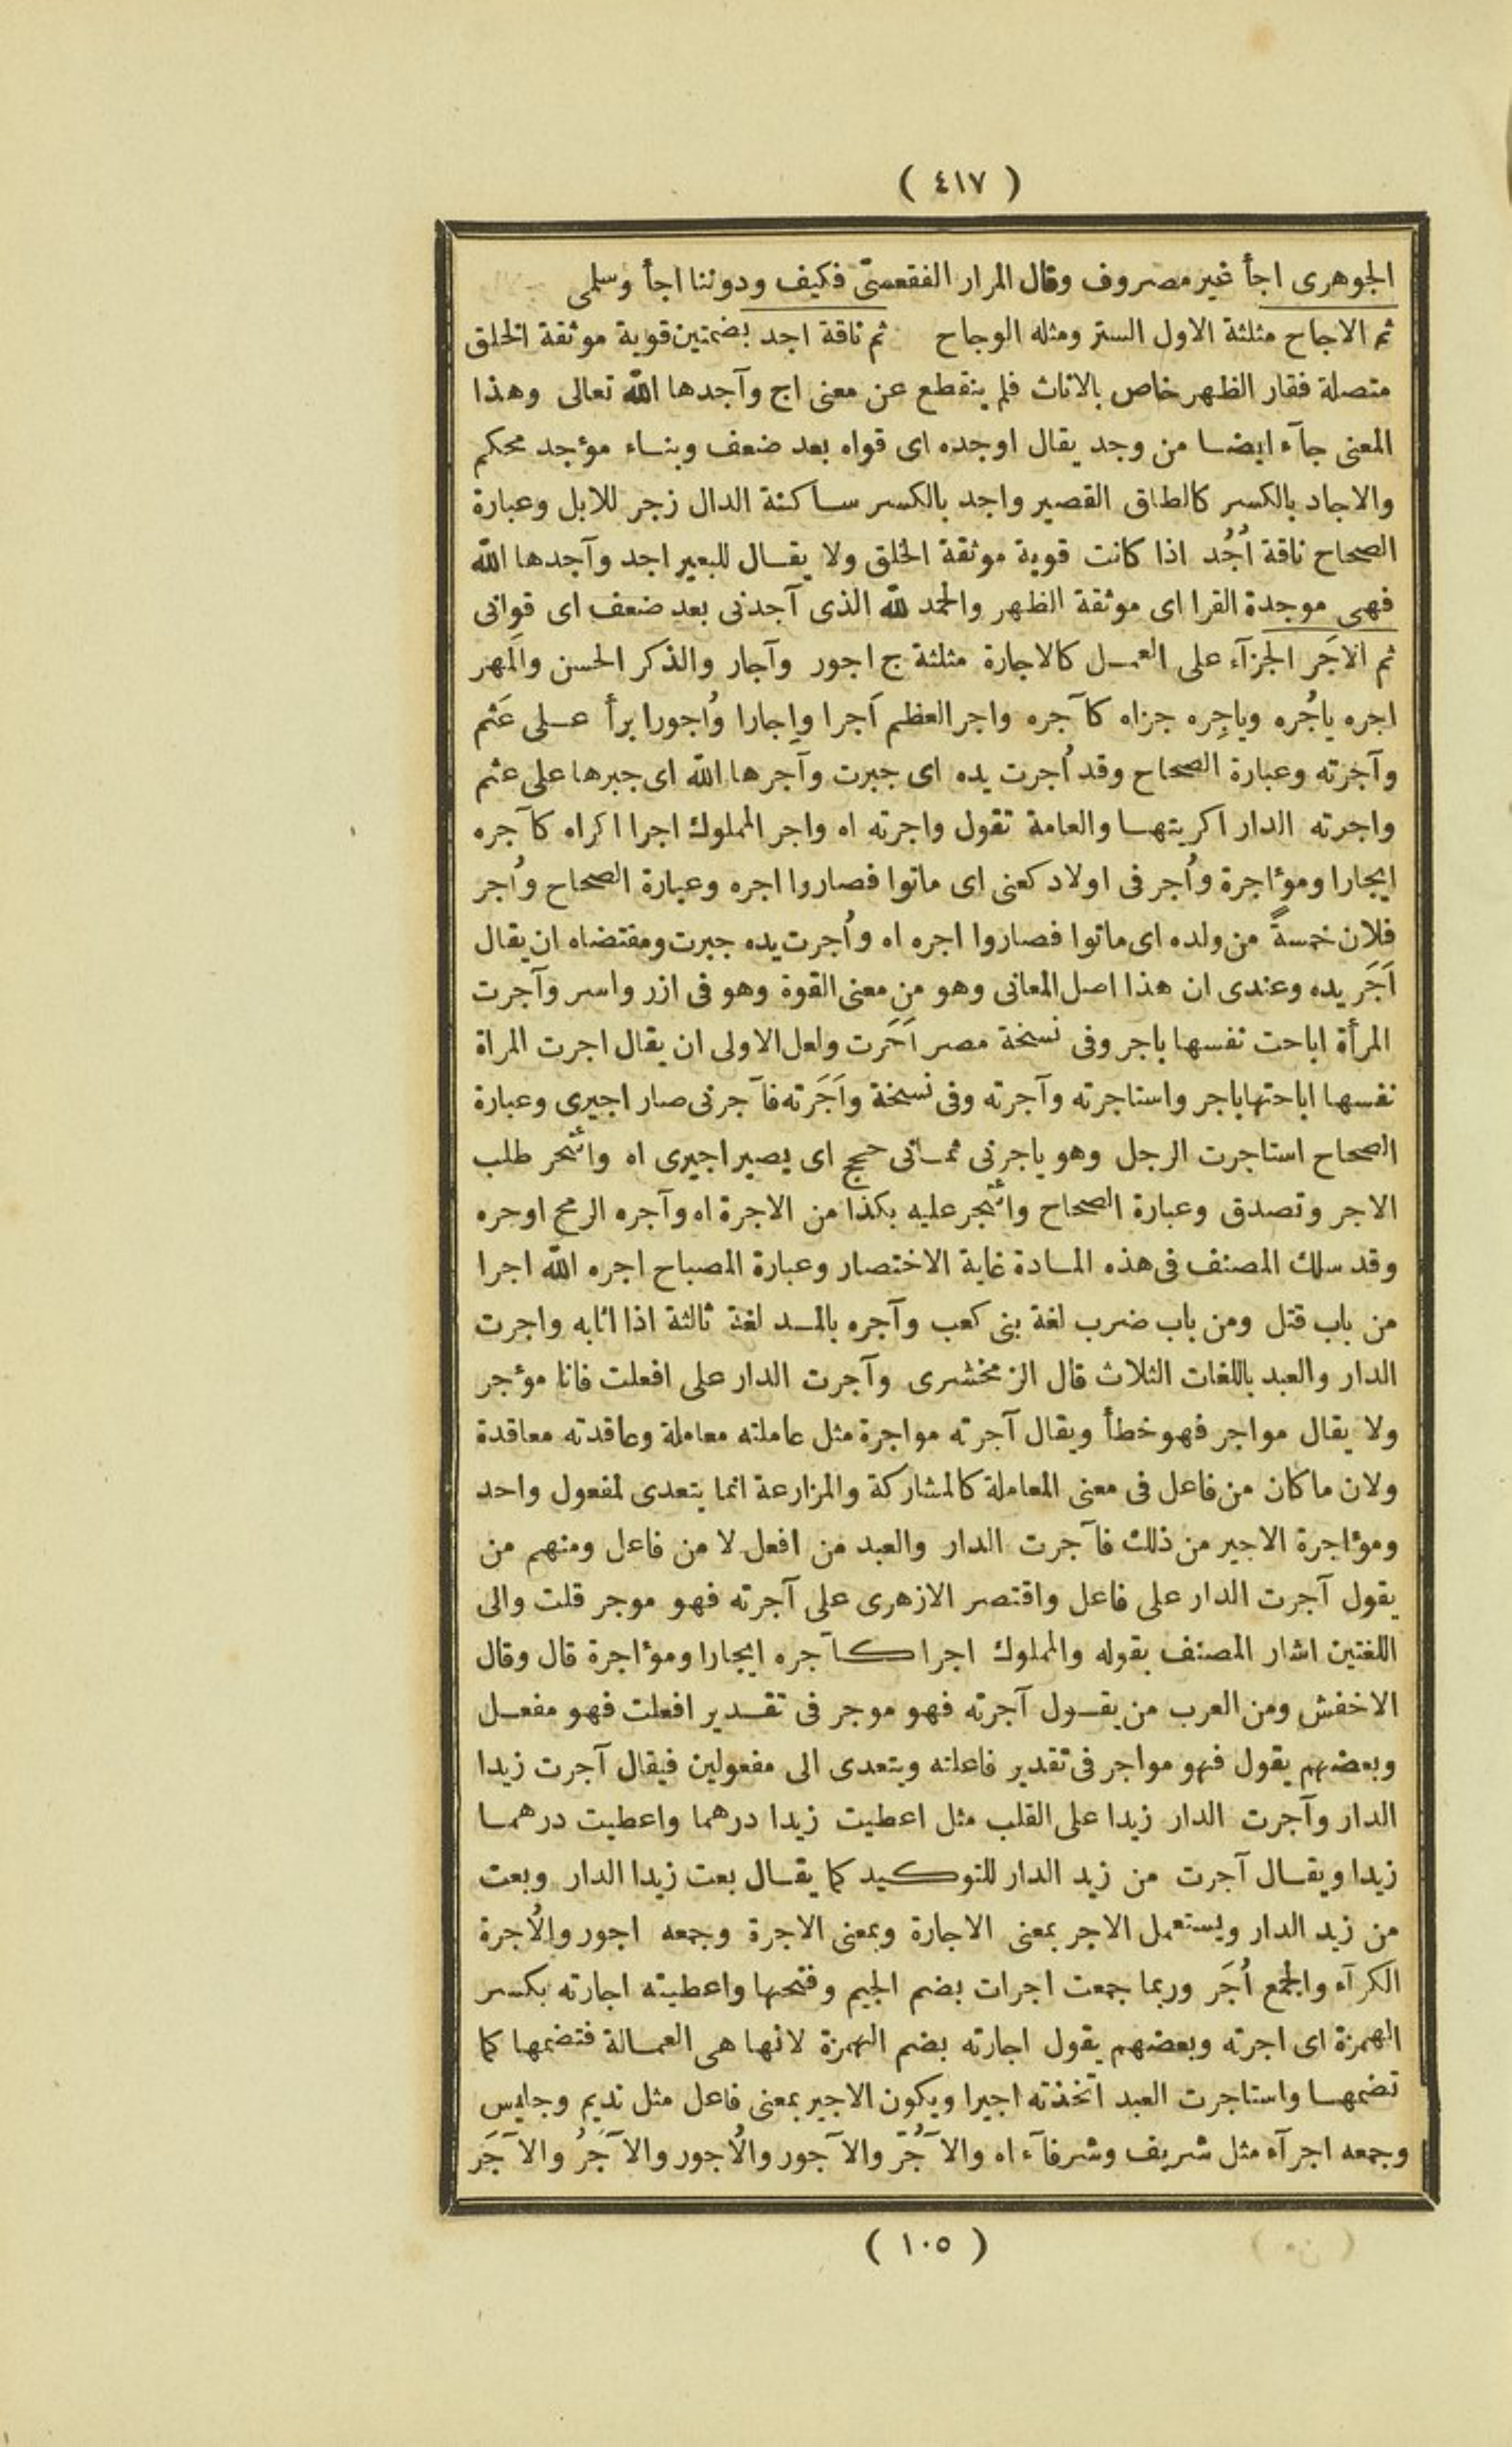 ( ٤١٧ )
الجوهرى اجأ غير مصروف وقال المرار الفقعسىّ فكيف ودوننا اجأ وسلمى
ثم الاجاح مثلثة الاول الستر ومثله الوجاح ثم ناقة اجد بضمتين قوية موثقة الخلق
متصلة فقار الظهر خاص بالاناث فلم ينقطع عن معنى اج وآجدها الله تعالى وهذا
المعنى جآء ايضا من وجد يقال اوجده اى قواه بعد ضعف وبناء مؤجد محكم
والاجاد بالكسر كالطاق القصير واجد بالكسر ساكنة الدال زجر للابل وعبارة
الصحاح ناقة اُجُد اذا كانت قوية موثقة الخلق ولا يقال للبعير اجد وآجدها الله
فهى موجدة القرا اى موثقة الظهر والحمد لله الذى آجدنى بعد ضعف اى قوانى
ثم الاَجَر الجزآء على العمل كالاجارة مثلثة ج اجور وآجار والذكر الحسن والمَهر
اجره ياجُره وياجِره جزاه كآجره واجر العظم اَجرا واِجارا واُجورا برأ على عَثم
وآجرته وعبارة الصحاح وقد اُجرت يده اى جبرت وآجرها الله اى جبرها على عثم
واجرته الدار اكريتها والعامة تقول واجرته اه واجر المملوك اجرا اكراه كآجره
ايجارا ومؤاجرة واُجر فى اولاد كعنى اى ماتوا فصاروا اجره وعبارة الصحاح واُجر
فلان خمسةً من ولده اى ماتوا فصاروا اجره اه واُجرت يده جبرت ومقتضاه ان يقال
اَجَر يده وعندى ان هذا اصل المعانى وهو من معنى القوة وهو فى ازر واسر وآجرت
المرأة اباحت نفسها باجر وفى نسخة مصر اَجَرت ولعل الاولى ان يقال اجرت المراة
نفسها اباحتها باجر واستاجرته وآجرته وفى نسخة واَجَرته فآجرنى صار اجيرى وعبارة
الصحاح استاجرت الرجل وهو ياجرنى ثمانى حجج اى يصير اجيرى اه وائتجر طلب
الاجر وتصدق وعبارة الصحاح وائتجر عليه بكذا من الاجرة اه وآجره الرمح اوجره
وقد سلك المصنف فى هذه المادة غاية الاختصار وعبارة المصباح اجره الله اجرا
من باب قتل ومن باب ضرب لغة بنى كعب وآجره بالمد لغة ثالثة اذا اثابه واجرت
الدار والعبد باللغات الثلاث قال الزمخشرى وآجرت الدار على افعلت فانا مؤجر
ولا يقال مواجر فهو خطأ ويقال آجرته مواجرة مثل عاملته معاملة وعاقدته معاقدة
ولان ما كان من فاعل فى معنى المعاملة كالمشاركة والمزارعة انما يتعدى لمفعول واحد
ومؤاجرة الاجير من ذلك فآجرت الدار والعبد من افعل لا من فاعل ومنهم من
يقول آجرت الدار على فاعل واقتصر الازهرى على آجرته فهو موجر قلت والى
اللغتين اشار المصنف بقوله والمملوك اجرا كآجره ايجارا ومؤاجرة قال وقال
الاخفش ومن العرب من يقول آجرته فهو موجر فى تقدير افعلت فهو مفعل
وبعضهم يقول فهو مواجر فى تقدير فاعلته ويتعدى الى مفعولين فيقال آجرت زيدا
الدار وآجرت الدار زيدا على القلب مثل اعطيت زيدا درهما واعطيت درهما
زيدا ويقال آجرت من زيد الدار للتوكيد كما يقال بعت زيدا الدار وبعت
من زيد الدار ويستعمل الاجر بمعنى الاجارة وبمعنى الاجرة وجمعه اجور والاُجرة
الكرآء والجمع اُجَر وربما جمعت اجرات بضم الجيم وفتحها واعطيته اجارته بكسر
الهمزة اى اجرته وبعضهم يقول اجارته بضم الهمزة لانها هى العمالة فتضمها كما
تضمها واستاجرت العبد اتخذته اجيرا ويكون الاجير بمعنى فاعل مثل نديم وجليس
وجمعه اجرآء مثل شريف وشرفآء اه والآجُرّ والآجور والاُجور والآجَرُ والآجَر
( ١٠٥ )